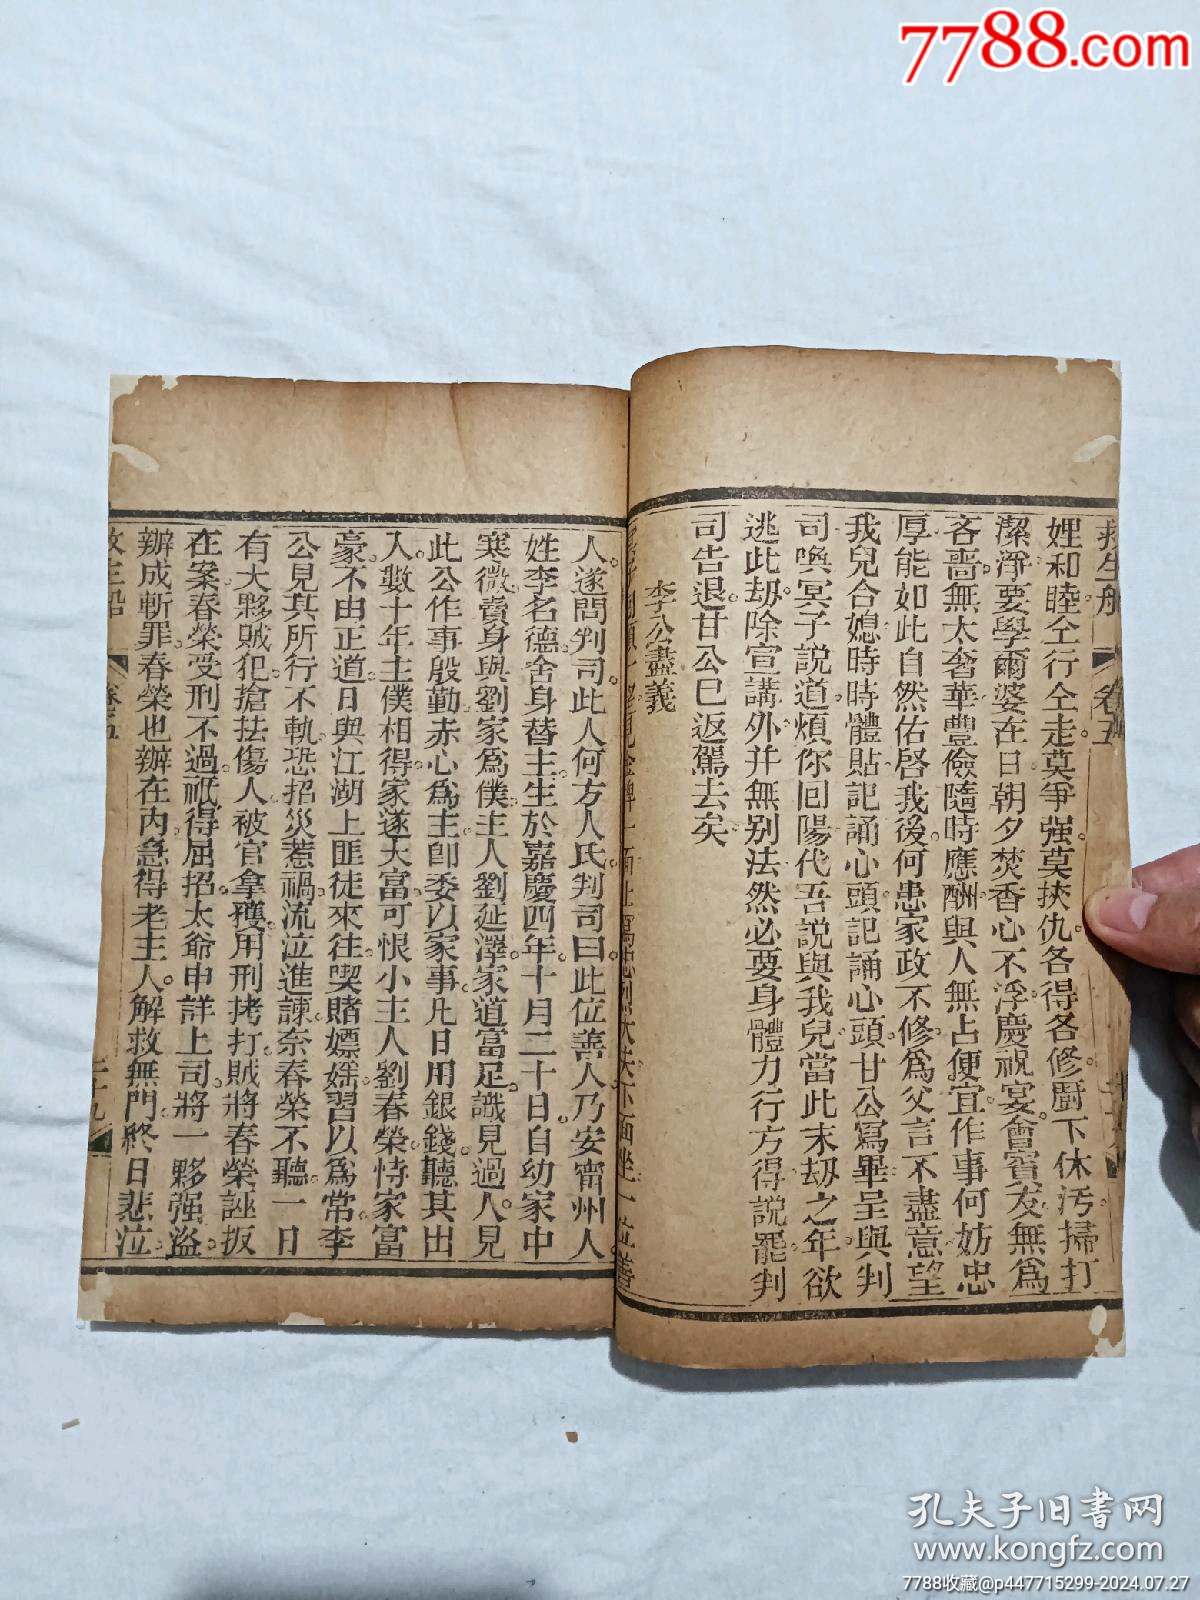 7788.com
救生船 卷五
娌和睦仝行仝走莫爭强莫挾仇各得各修厨下休汚掃打
潔淨要學爾婆在日朝夕焚香心不浮慶祝宴會賓友無爲
吝嗇無太奢華豐儉隨時應酬與人無占便宜作事何妨忠
厚能如此自然佑啓我後何患家政不修爲父言不盡意望
我兒合媳時時體貼記誦心頭記誦心頭甘公寫畢呈與判
司喚冥子說道煩你回陽代吾說與我兒當此末刼之年欲
逃此刼除宣講外并無别法然必要身體力行方得説罷判
司告退甘公已返駕去矣
李公盡義
人遂問判司此人何方人氏判司曰此位善人乃安甯州人
姓李名德舍身替主生於嘉慶四年十月二十日自幼家中
寒微賣身與劉家爲僕主人劉延澤家道富足識見過人見
此公作事殷勤赤心爲主卽委以家事凢日用銀錢聽其出
入數十年主僕相得家遂大富可恨小主人劉春榮恃家富
豪不由正道日與江湖上匪徒來往喫賭嫖婬習以爲常李
公見其所行不軌恐招災惹禍流泣進諫奈春榮不聽一日
有大夥賊犯搶抾傷人被官拿獲用刑拷打賊將春榮誣扳
在案春榮受刑不過祗得屈招太爺申詳上司將一夥强盜
辦成斬罪春榮也辦在内急得老主人解救無門終日悲泣
孔夫子旧書网
www.kongfz.com
7788收藏@p447715299-2024.07.27